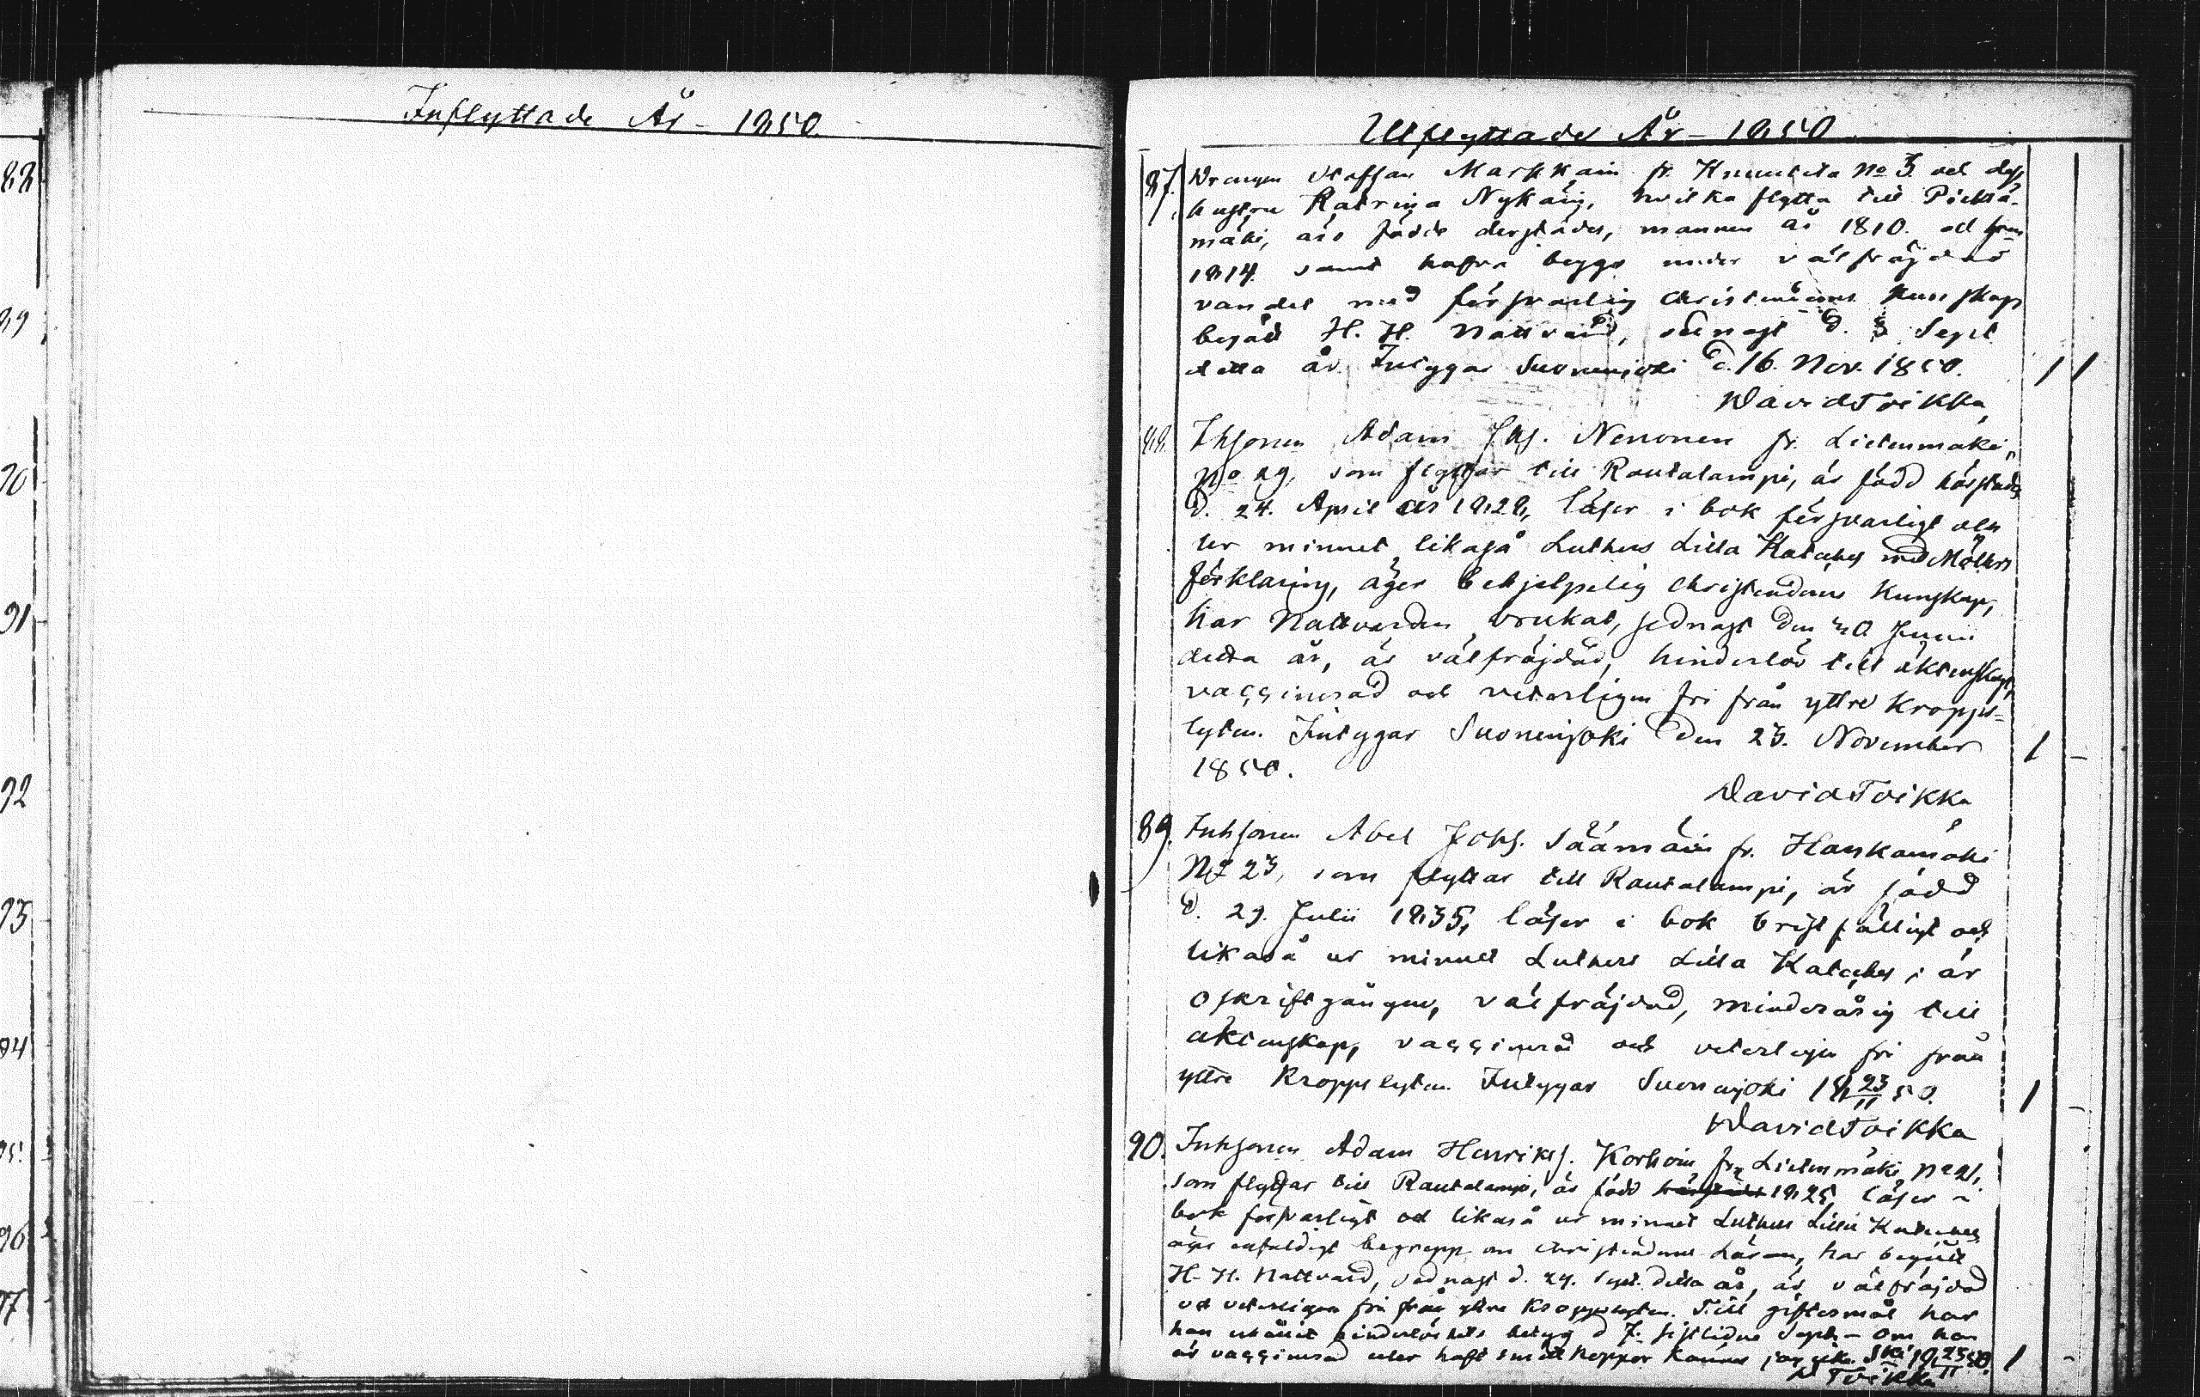 Inflyttade År - 1850.
88
89
90
91
92
93
94
95
96
97
Utflyttade År - 1850
87. Drängen Staffan Markkain fr. No 3 och dess
hustru Katrina Nykäin, hvilka flytta till Pieksä-
mäki, äro födde derstädes, mannen år 1810. och hon
1814. samt hafva begge under välfräjdad
vandel med försvarlig Christendoms Kunskap
begått H. H. Nattvard, sednast d. 8 Sept
detta år. Intygar Suonenjoki d. 16. Nov. 1850. 1 1
David Toikka
88. Ihsonen Adam Joh. Nenonen fr. Lietenmäki
No 29, som flyttar till Rautalampi, är född härstädes
d. 24. April år 1828, läser i bok försvarligt och
ur minnet likaså Luthers Lilla Kateches med
förklaring, äger behjelpelig Christendoms Kunskap,
har Nattvarden brukat, sednast den 30 Junii
detta år, är välfräjdad, hinderlös till äktenskap,
vaccinerad och veterligen fri från yttre Kropps-
lyten. Intygar Suonenjoki den 23. November 1 -
1850.
David Toikka
89. Inhsonen Abel Johs. Säämäin fr. Hankamäki
No 23, som flyttar till Rautalampi, är född
d. 29. Julii 1835, läser i bok bristfälligt och
likaså ur minnet Luthers Lilla Kateches, är
oskriftgången, välfräjdad, minderårig till
äktenskap, vaccinerad och veterligen fri från
yttre Kroppslyten. Intygar Suonenjoki 18 23/11 50. 1 -
David Toikka
90. Inhsonen Adam Henriks. Korhoin från Lietenmäki No 21,
som flyttar till Rautalampi, är född härstädes 1825, läser i
bok försvarligt och likaså ur minnet Luthers Lilla Kateches
äger enfaldigt begrepp om Christendoms Läran, har begått
H. H. Nattvard, sednast d. 29. Sept. detta år, är välfräjdad
och veterligen fri från yttre Kroppslyten. Till giftermål har
han hinderlöshets betyg d 7. sistlidne Sept. - Om han
är vaccinerad eller haft smittkoppor känner jag icke. Ski 18 25/11 50. 1 -
D Toikka